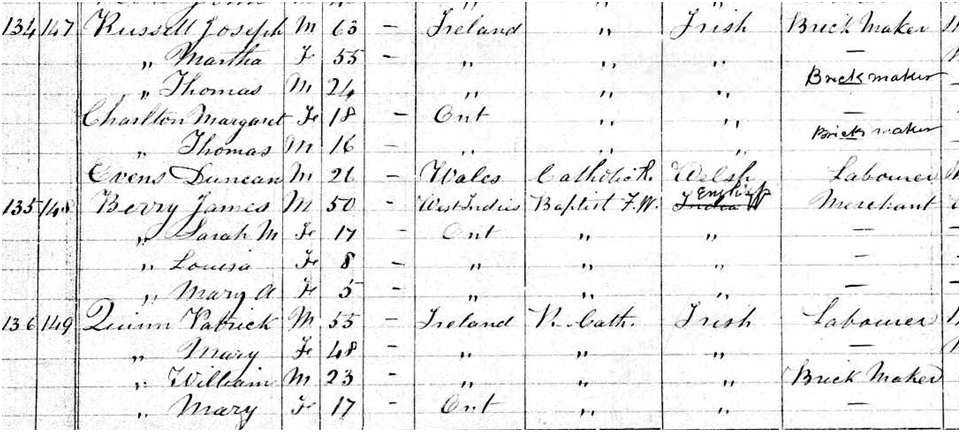 134 147 Russell Joseph M 63 - Ireland " Irish Brick Maker
" Martha Fe 55 - " " " -
" Thomas M 24 - " " " Brick maker
Charlton Margaret Fe 18 - Ont " " -
" Thomas M 16 - " " " Brick maker
Evens Duncan M 26 - Wales Catholic R. Welsh Labourer
135 148 Berry James M 50 - West Indies Baptist F.W. India English Merchant
" Sarah M Fe 17 - Ont " " -
" Louisa Fe 8 - " " " -
" Mary A Fe 5 - " " " -
136 149 Quinn Patrick M 55 - Ireland R. Cath. Irish Labourer
" Mary Fe 48 - " " "
" William M 23 - " " " Brick Maker
" Mary Fe 17 - Ont " " -